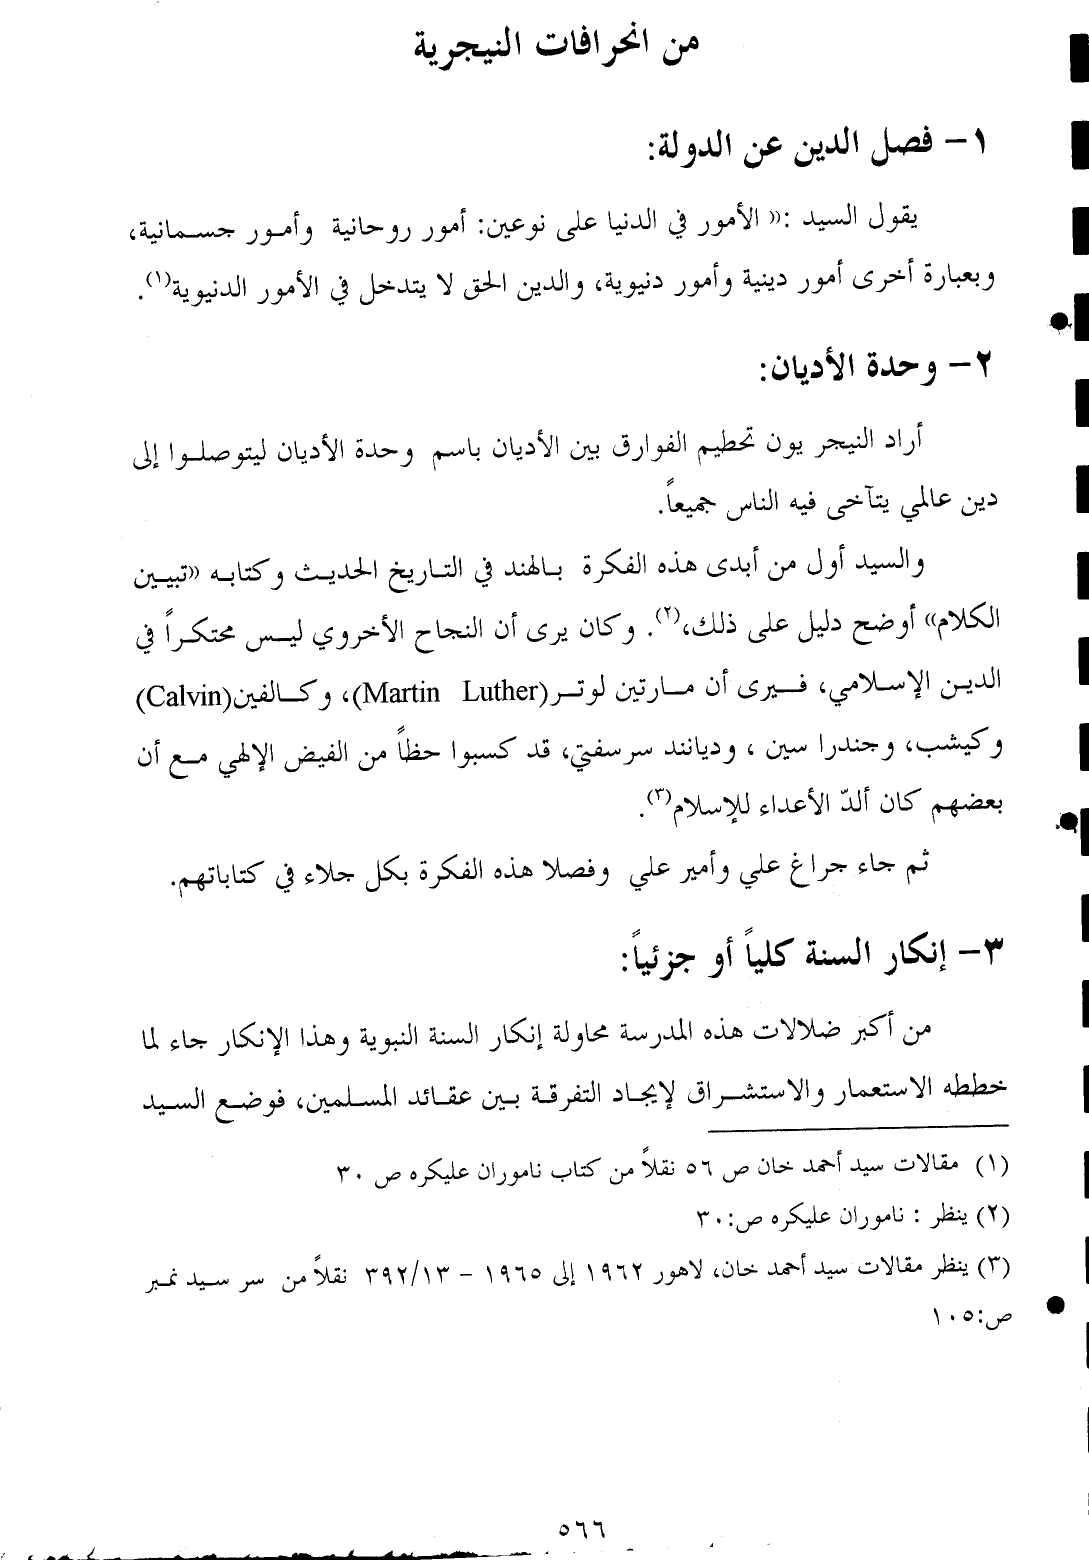 من انحرافات النيجرية
١– فصل الدين عن الدولة:
يقول السيد :« الأمور في الدنيا على نوعين: أمور روحانية وأمور جسمانية،
وبعبارة أخرى أمور دينية وأمور دنيوية، والدين الحق لا يتدخل في الأمور الدنيوية(١).
٢– وحدة الأديان:
أراد النيجر يون تحطيم الفوارق بين الأديان باسم وحدة الأديان ليتوصلوا إلى
دين عالمي يتآخى فيه الناس جميعاً.
والسيد أول من أبدى هذه الفكرة بالهند في التاريخ الحديث وكتابه «تبيين
الكلام» أوضح دليل على ذلك،(٢). وكان يرى أن النجاح الأخروي ليس محتكراً في
الدين الإسلامي، فيرى أن مارتين لوتر(Martin Luther)، وكالفين(Calvin)
وكيشب، وجندرا سين ، وديانند سرسفتي، قد كسبوا حظاً من الفيض الإلهي مع أن
بعضهم كان ألدّ الأعداء للإسلام(٣).
ثم جاء جراغ علي وأمير علي وفصلا هذه الفكرة بكل جلاء في كتاباتهم.
٣– إنكار السنة كلياً أو جزئياً:
من أكبر ضلالات هذه المدرسة محاولة إنكار السنة النبوية وهذا الإنكار جاء لما
خططه الاستعمار والاستشراق لإيجاد التفرقة بين عقائد المسلمين، فوضع السيد
(١) مقالات سيد أحمد خان ص ٥٦ نقلاً من كتاب ناموران عليكره ص ٣٠
(٢) ينظر : ناموران عليكره ص:٣٠
(٣) ينظر مقالات سيد أحمد خان، لاهور ١٩٦٢ إلى ١٩٦٥ – ٣٩٢/١٣ نقلاً من سر سيد نمبر
ص:١٠٥
٥٦٦